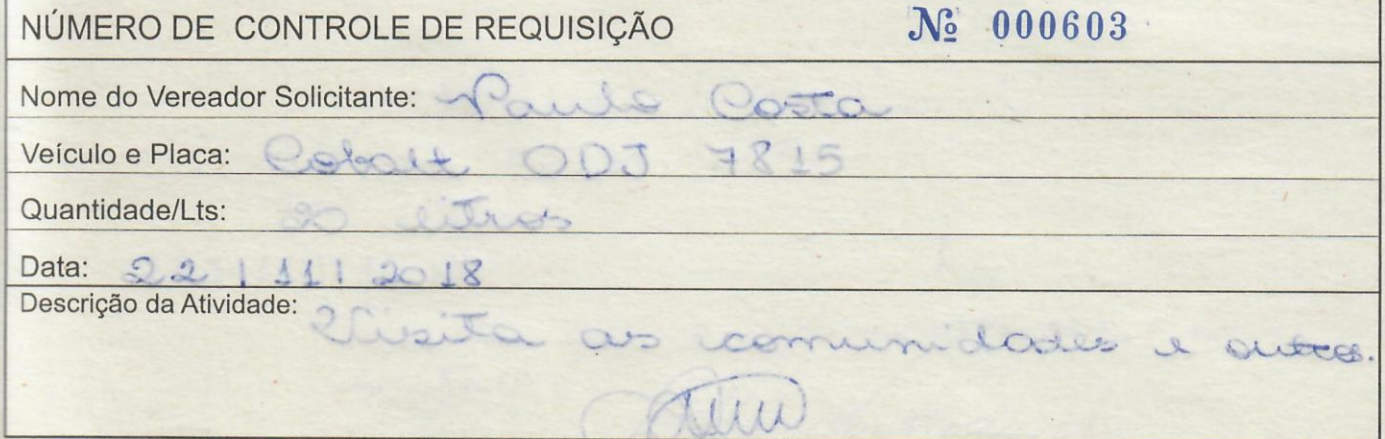 NÚMERO DE CONTROLE DE REQUISIÇÃO Nº 000603
Nome do Vereador Solicitante: Paulo Costa
Veículo e Placa: Cobalt ODJ 7815
Quantidade/Lts: 20 litros
Data: 22 / 11 / 2018
Descrição da Atividade: Visita as comunidades e outros.